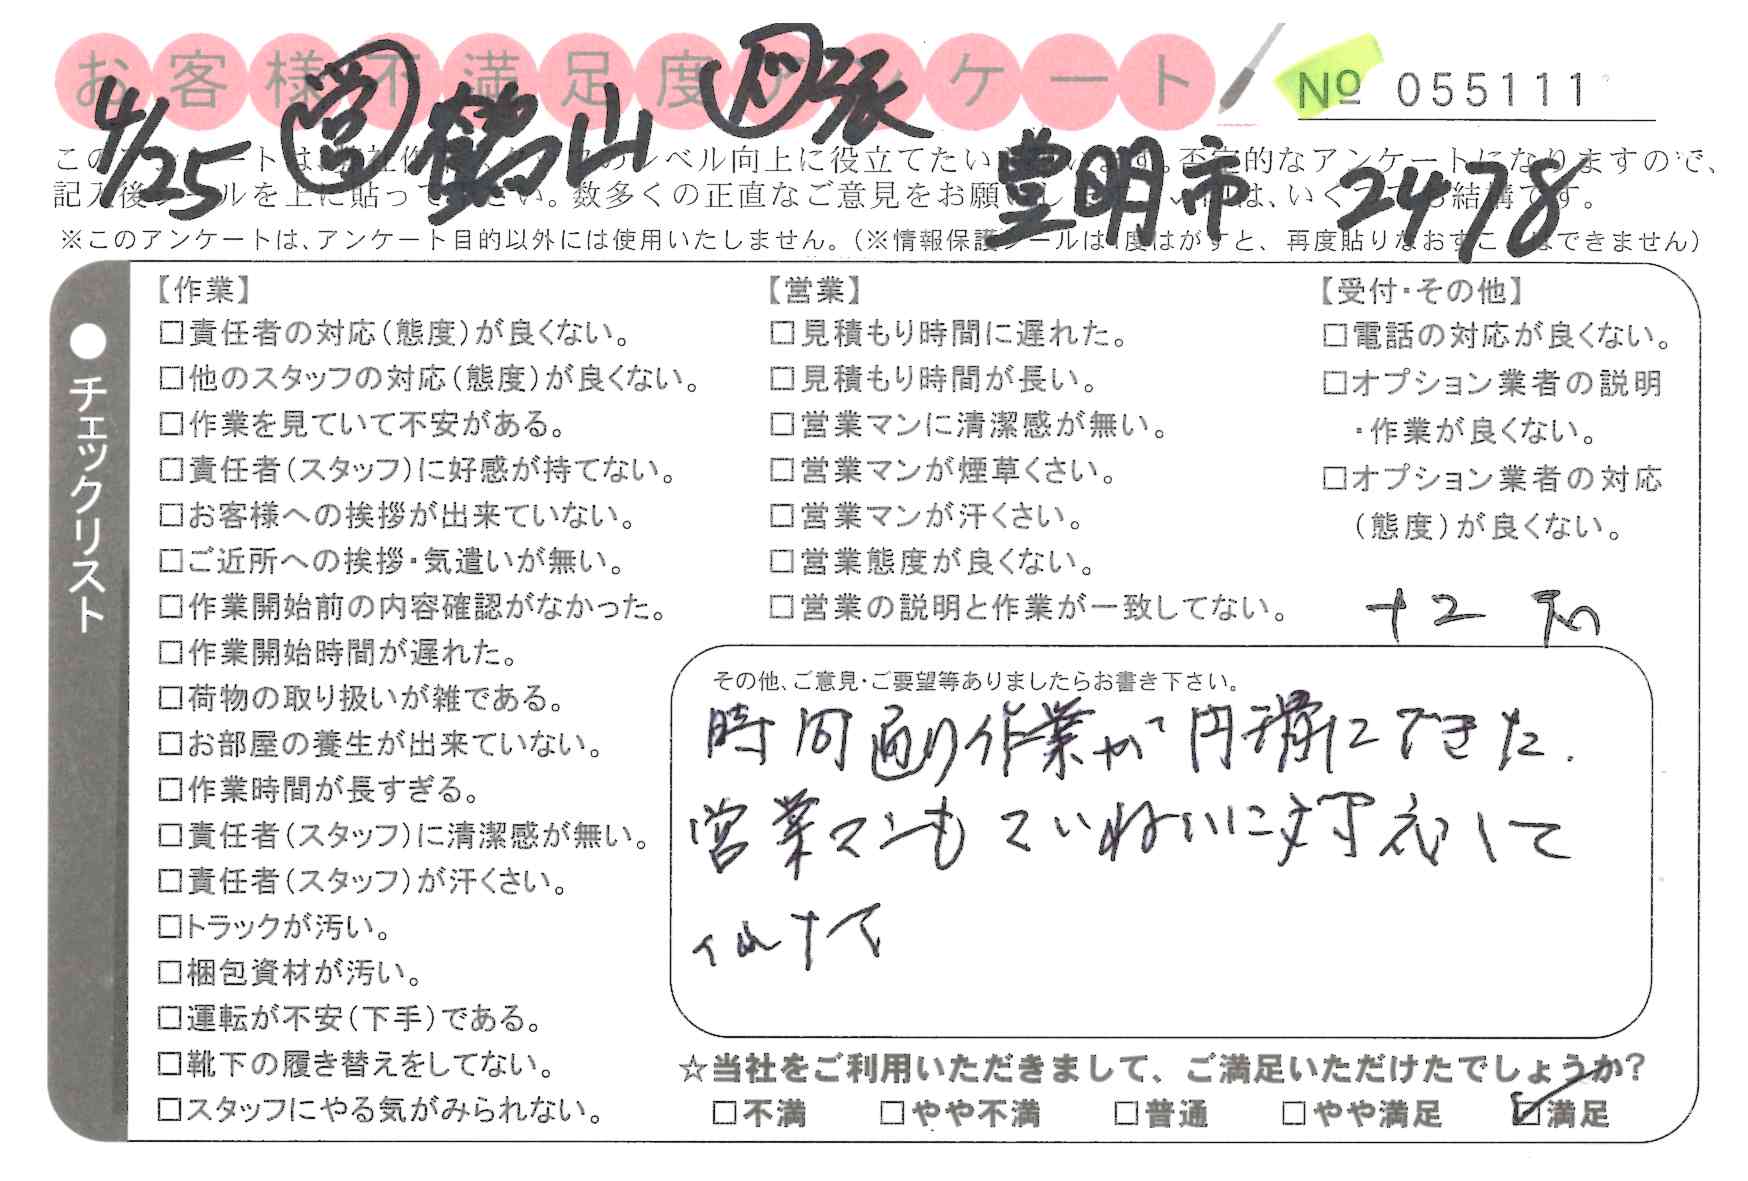 お客様不満足度アンケート
No 055111
4/25 営 鶴山 豊明市 2478
このアンケートは、レベル向上に役立てたい。否定的なアンケートになりますので、
記入後シールを上に貼って下さい。数多くの正直なご意見をお願いします。は、いくつでも結構です。
※このアンケートは、アンケート目的以外には使用いたしません。(※情報保護シールは1度はがすと、再度貼りなおすことはできません)
●チェックリスト
【作業】
□責任者の対応(態度)が良くない。
□他のスタッフの対応(態度)が良くない。
□作業を見ていて不安がある。
□責任者(スタッフ)に好感が持てない。
□お客様への挨拶が出来ていない。
□ご近所への挨拶・気遣いが無い。
□作業開始前の内容確認がなかった。
□作業開始時間が遅れた。
□荷物の取り扱いが雑である。
□お部屋の養生が出来ていない。
□作業時間が長すぎる。
□責任者(スタッフ)に清潔感が無い。
□責任者(スタッフ)が汗くさい。
□トラックが汚い。
□梱包資材が汚い。
□運転が不安(下手)である。
□靴下の履き替えをしてない。
□スタッフにやる気がみられない。
【営業】
□見積もり時間に遅れた。
□見積もり時間が長い。
□営業マンに清潔感が無い。
□営業マンが煙草くさい。
□営業マンが汗くさい。
□営業態度が良くない。
□営業の説明と作業が一致してない。
【受付・その他】
□電話の対応が良くない。
□オプション業者の説明
・作業が良くない。
□オプション業者の対応
(態度)が良くない。
その他、ご意見・ご要望等ありましたらお書き下さい。
時間通り作業が円滑にできた.
営業マンもていねいに対応して
☆当社をご利用いただきまして、ご満足いただけたでしょうか?
□不満 □やや不満 □普通 □やや満足 ☑満足